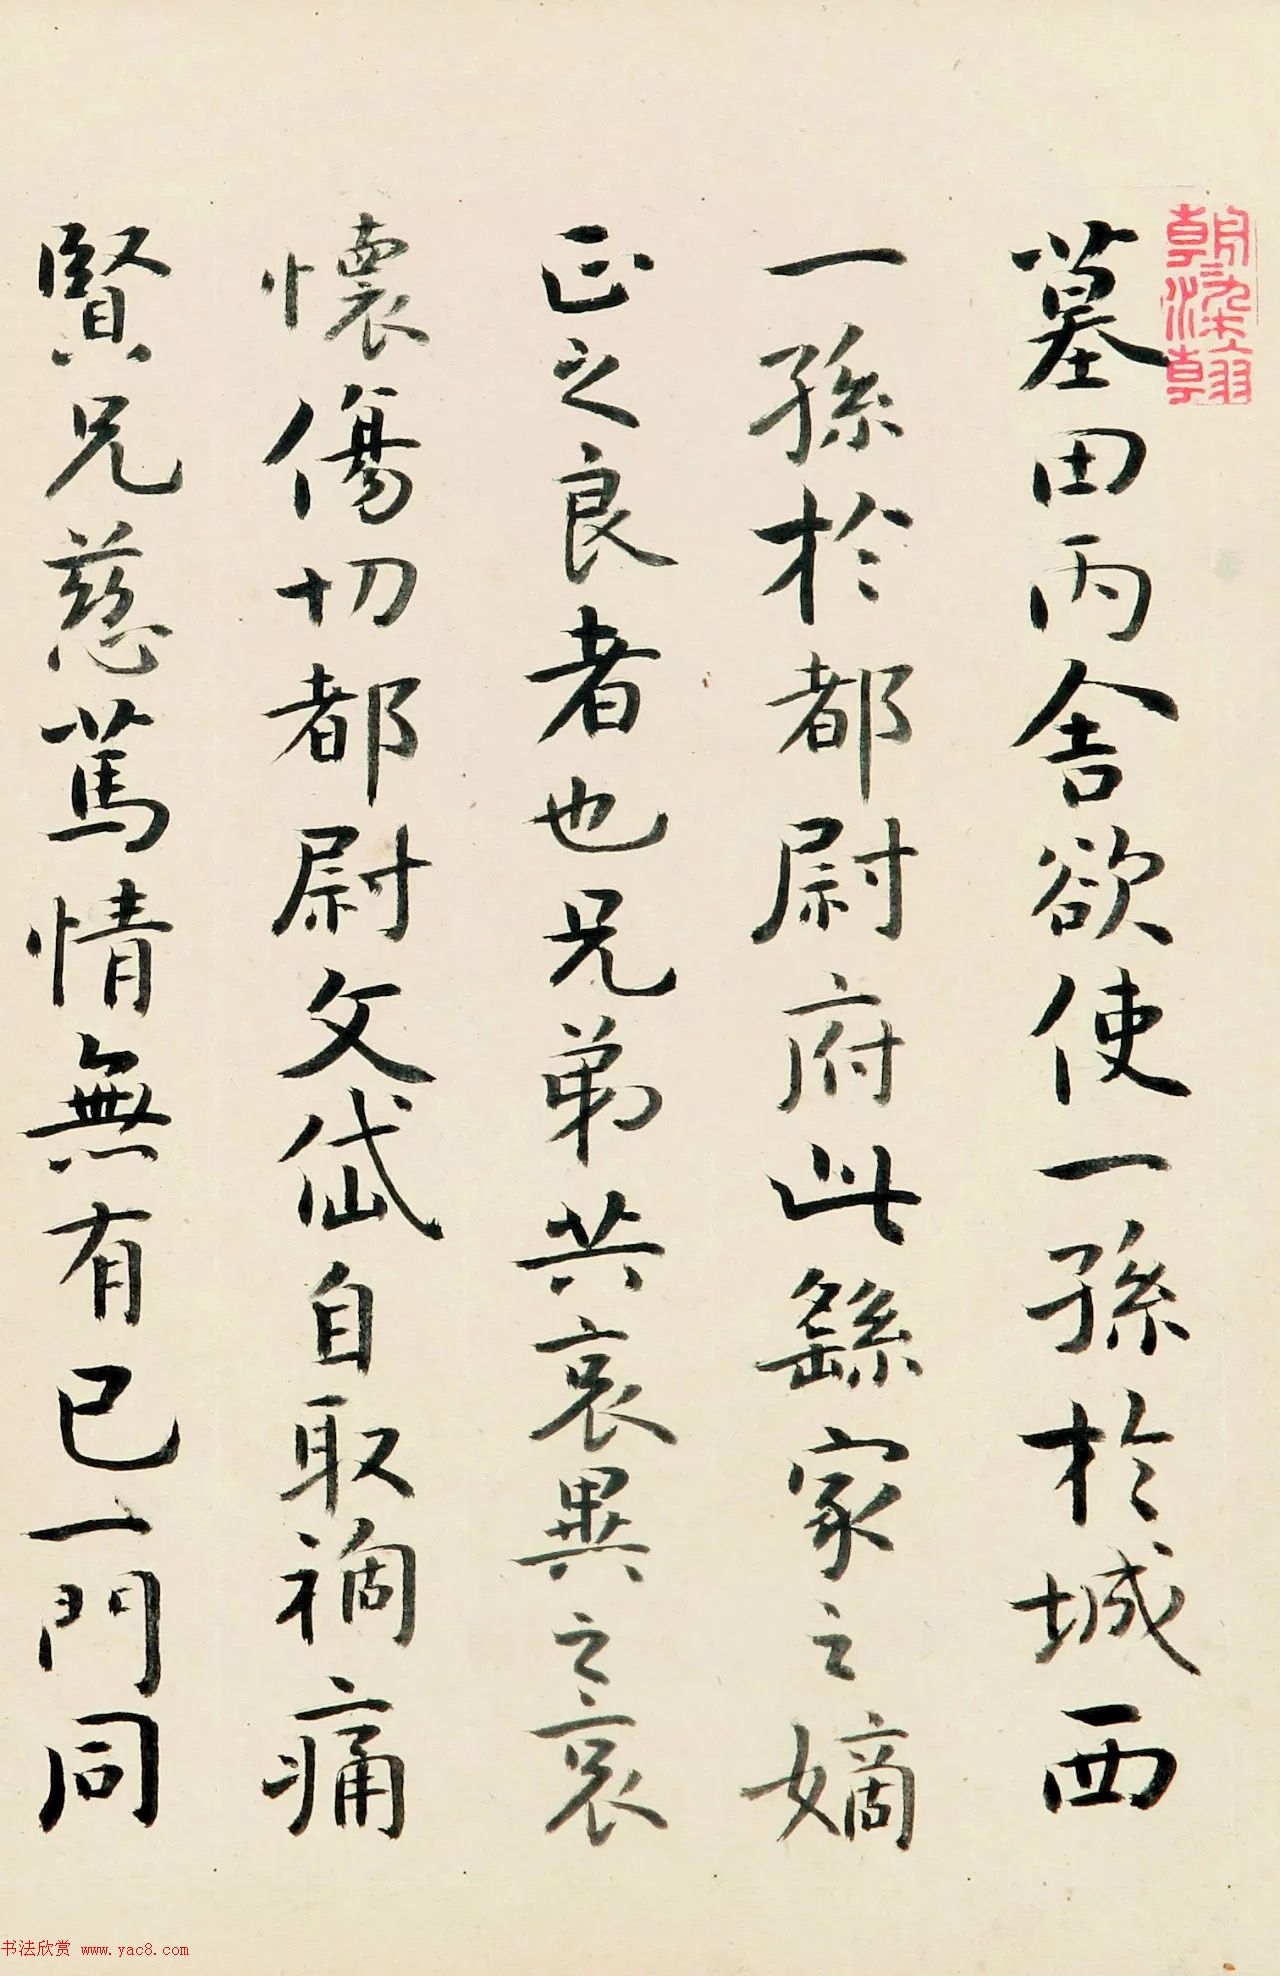 朝染翰
墓田丙舍欲使一孫於城西
一孫於都尉府此繇家之嫡
正之良者也兄弟共哀異之哀
懷傷切都尉文岱自取禍痛
賢兄慈篤情無有已一門同
书法欣赏 www.yac8.com